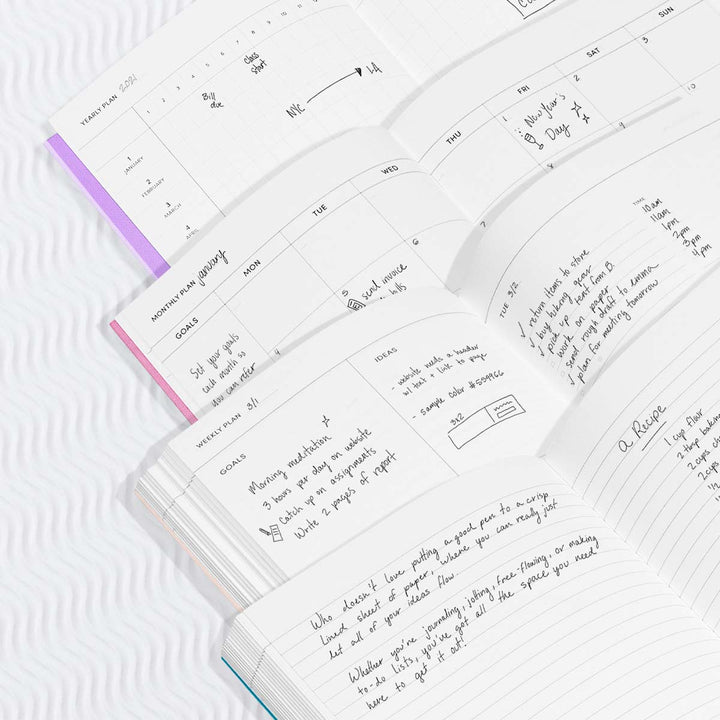 YEARLY PLAN 2021
1 2 3 4 5 6 7 8 9 10 11 12
Bill due
Class Start
NYC
LA
1
JANUARY
2
FEBRUARY
3
MARCH
4
APRIL
MONTHLY PLAN January
GOALS
MON
TUE
WED
THU
FRI
SAT
SUN
1
2
3
New Year's
Day
4
6
7
8
9
10
send invoice
bills
Set your goals
each month so
you can refer
WEEKLY PLAN 3/1
GOALS
Morning meditation
3 hours per day on website
Catch up on assignments
Write 2 pages of report
IDEAS
- website needs a header
w/ text + link to page
- Sample color #559966
3x2
TUE 3/2
return items to store
buy biking gear
pick up tent from B.
work on paper
send rough draft to emma
plan for meeting tomorrow
TIME
10am
11am
1pm
2pm
3pm
4pm
Who doesn't love putting a good pen to a crisp
lined sheet of paper, where you can really just
let all of your ideas flow.
Whether you're journaling, jotting, free-flowing, or making
to-do lists, you've got all the space you need
here to get it out!
a Recipe
1 cup flour
2 tbsp
2 cups
2 cups